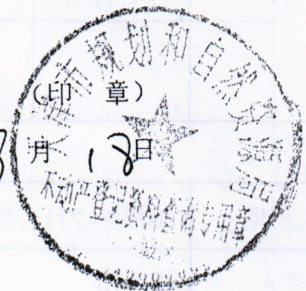 天津市规划和自然资源局
(印 章)
月 18日
不动产登记资料查询专用章